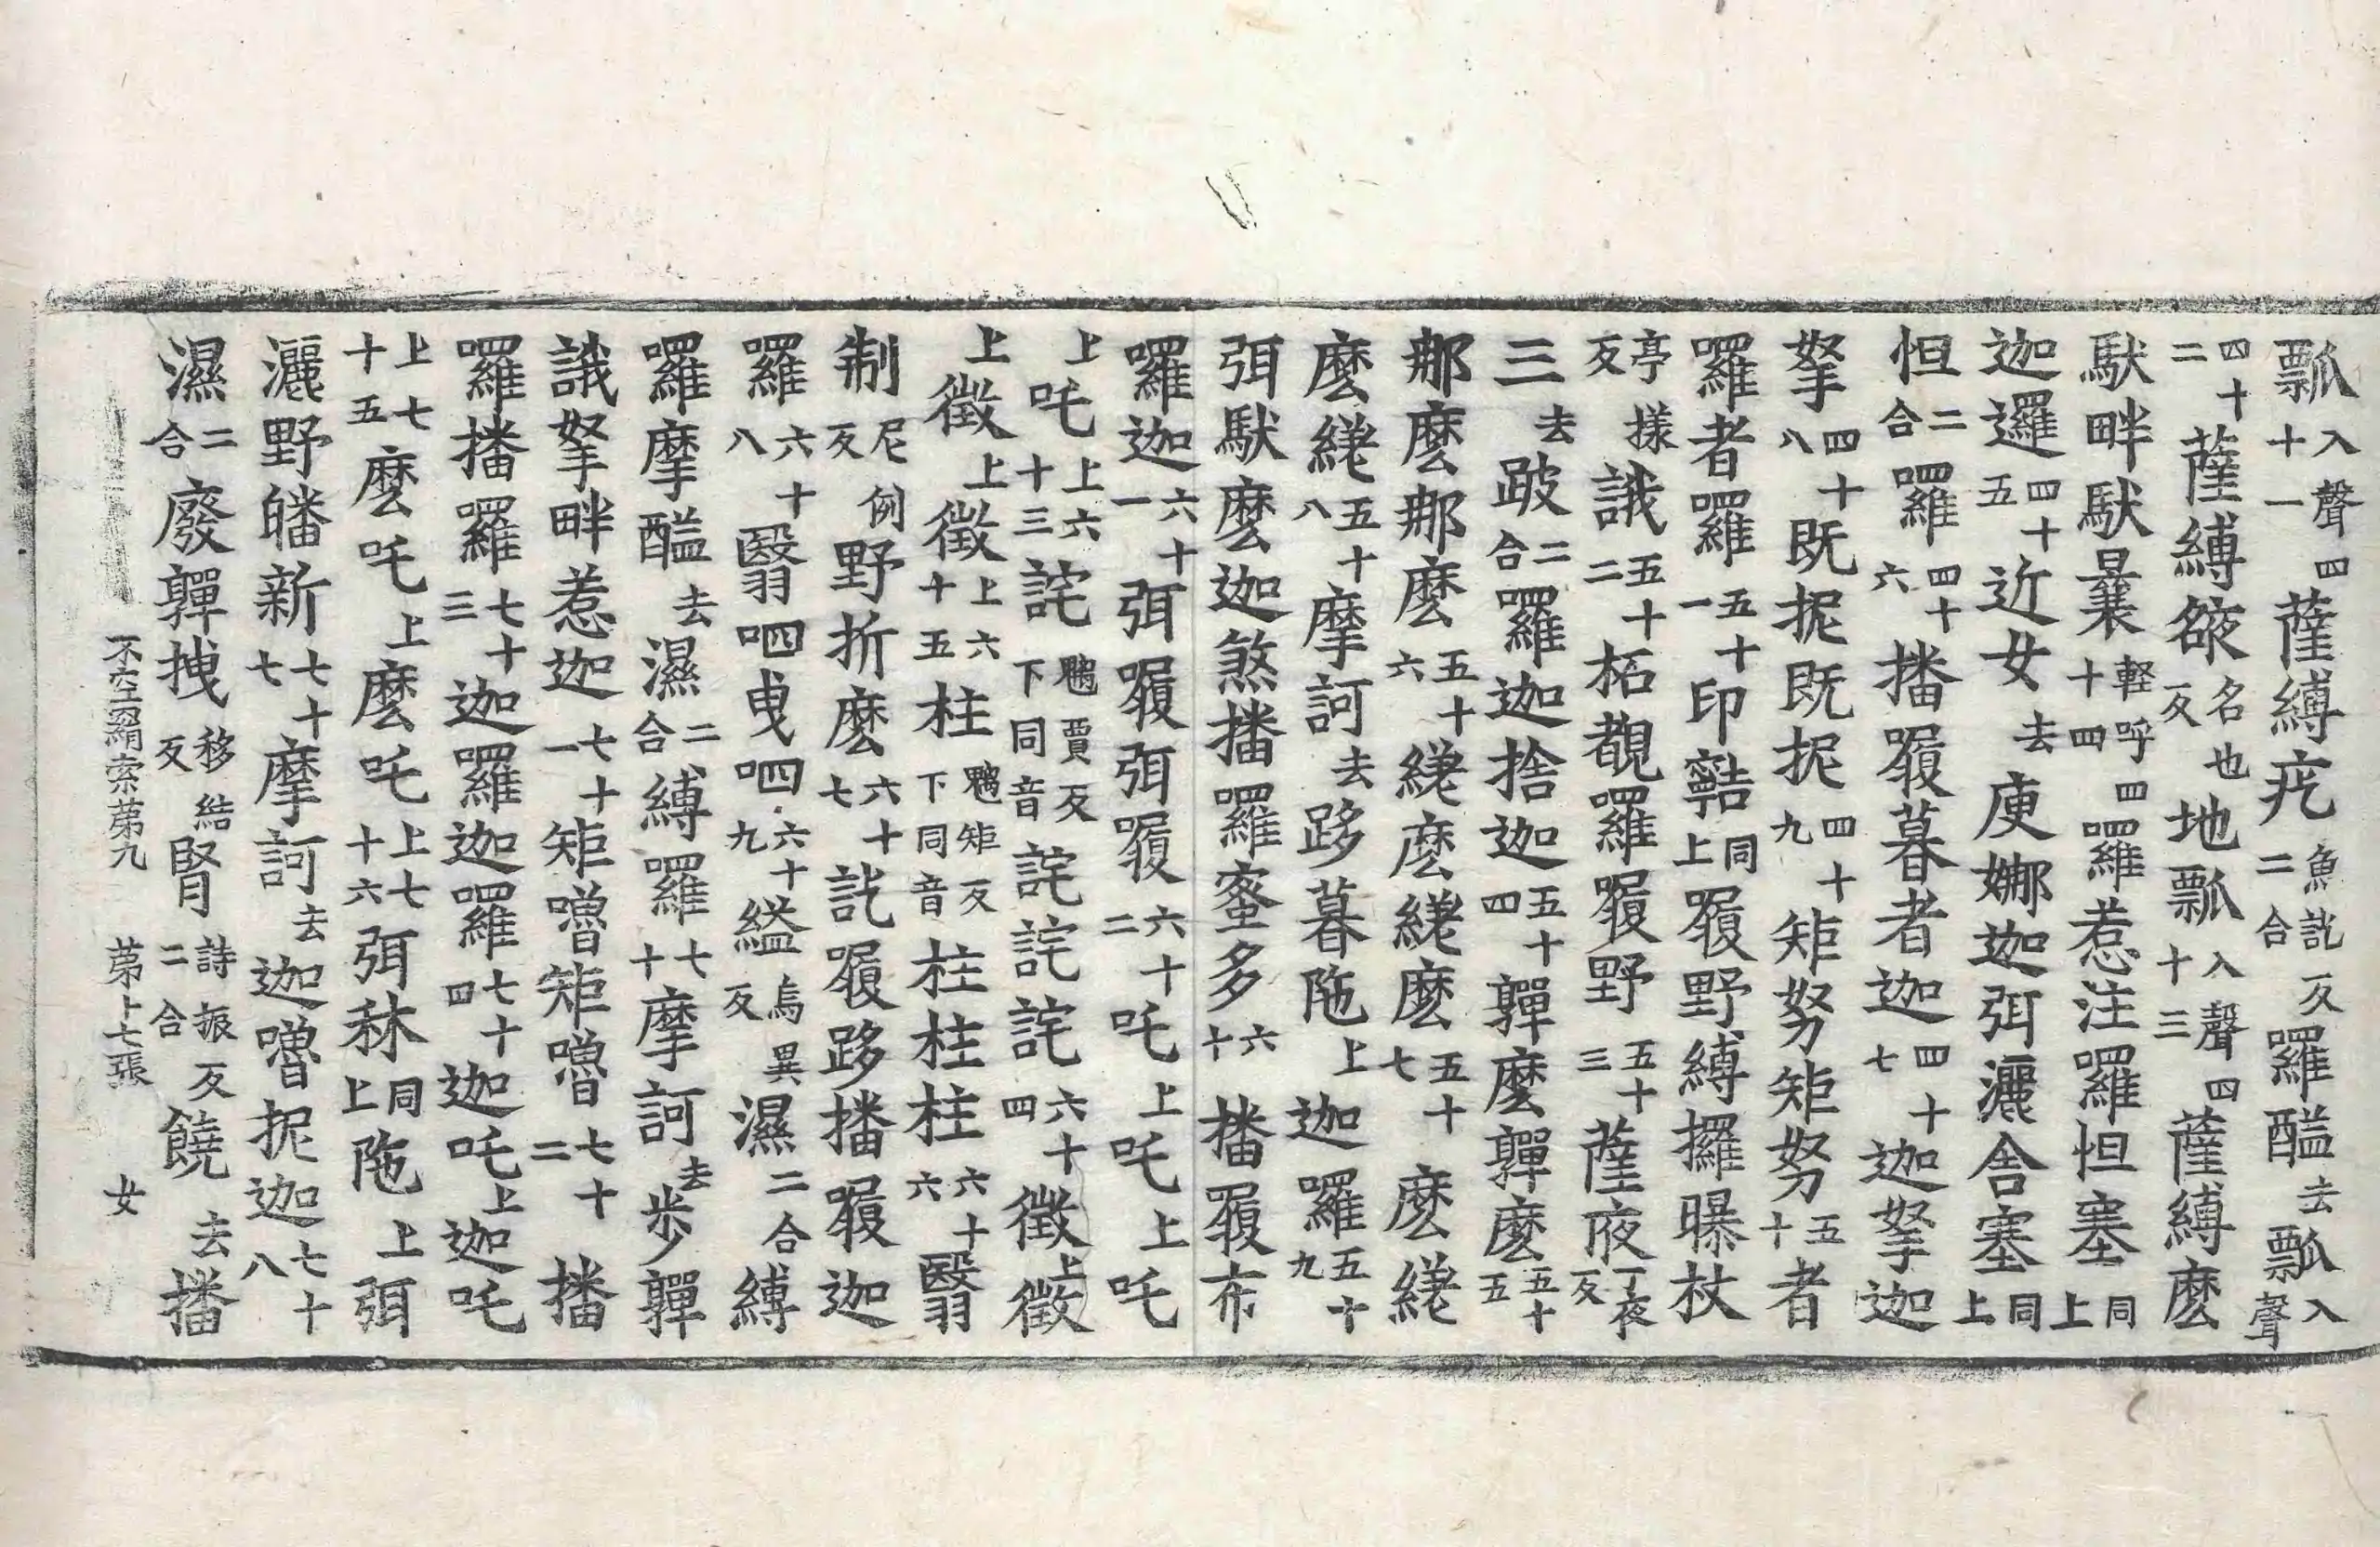 瓢入聲四十一薩縛疙魚訖反二合囉醯去瓢入聲
四十二薩縛䫂名也反地瓢入聲四十三薩縛麽
馱畔馱曩輕呼四十四囉惹注囉怛塞同上
迦邏四十五近女去庾娜迦弭灑舍塞同上
怛二合囉四十六播履暮者迦四十七迦拏迦
拏四十八既抳既抳四十九矩努矩努五十者
囉者囉五十一印㘓同上履野縛攞曝杖
亭樣反誐五十二柘覩囉履野五十三薩夜丁夜反
三去跛二合囉迦捨迦五十四亸麽亸麽五十五
那麽那麽五十六縒麽縒麽五十七麽縒
麽縒五十八摩訶去跢暮陁上迦囉五十九
弭馱麽迦煞播囉蜜多六十播履布
囉迦六十一弭履弭履六十二吒上吒上吒
上吒上六十三詫魑賈反下同音詫詫詫六十四徵上徵
上徵上徵上六十五柱魑矩反下同音柱柱柱六十六翳
制尼例反野折麽六十七訖履跢播履迦
囉六十八翳呬曳呬六十九縊烏異反濕二合縛
囉摩醯去濕二合縛囉七十摩訶去步亸
誐拏畔惹迦七十一矩嚕矩嚕七十二播
囉播囉七十三迦囉迦囉七十四迦吒上迦吒
上七十五麽吒上麽吒上七十六弭秫同上陁上弭
灑野皤新七十七摩訶去迦嚕抳迦七十八
濕二合廢亸拽移結反腎詩振反二合饒去播
不空羂索苐九 苐十七張 女